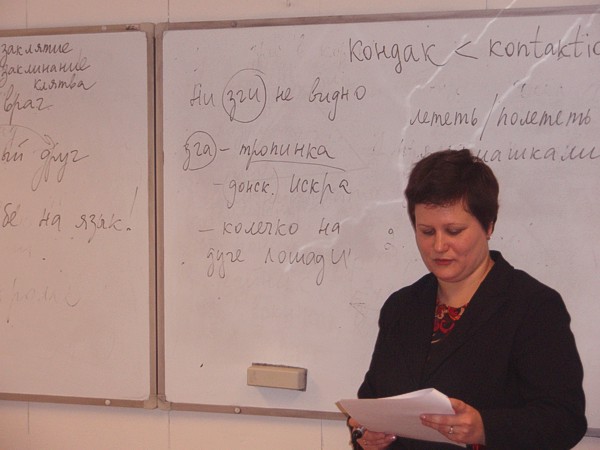 заклятие
заклинание
клятва
враг
ый друг
бе на язык!
кондак < kontaktio
Ни зги не видно
зга – тропинка
– донск.) искра
– колечко на
дуге лошади
лететь / полететь